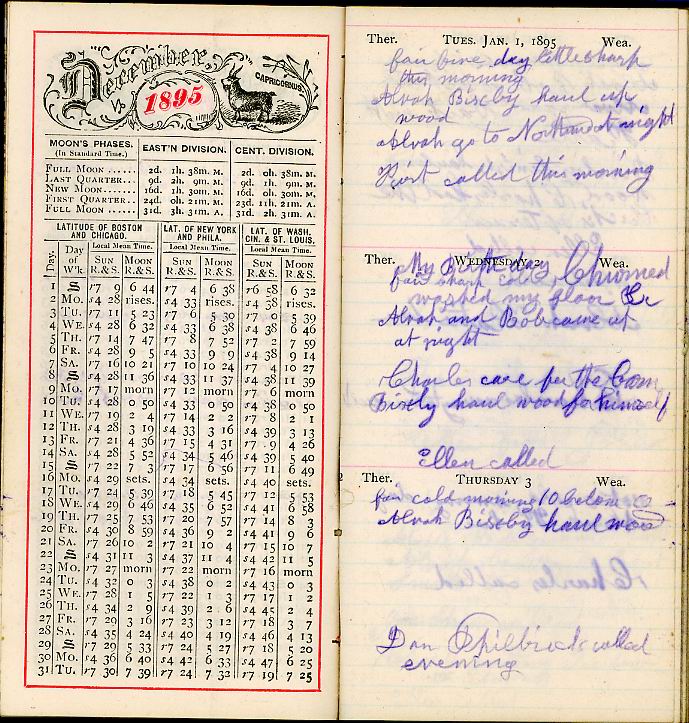 December,
1895
CAPRICORNUS.
MOON'S PHASES. EAST'N DIVISION. CENT. DIVISION.
(In Standard Time.)
FULL MOON ...... 2d. 1h. 38m. M. 2d. 0h. 38m. M.
LAST QUARTER... 9d. 2h. 9m. M. 9d. 1h. 9m. M.
NEW MOON...... 16d. 1h. 30m. M. 16d. 0h. 30m. M.
FIRST QUARTER.. 24d. 0h. 21m. M. 23d. 11h. 21m. A.
FULL MOON ...... 31d. 3h. 31m. A. 31d. 2h. 31m. A.
LATITUDE OF BOSTON AND CHICAGO. LAT. OF NEW YORK AND PHILA. LAT. OF WASH. CIN. & ST. LOUIS.
Day. Day of W'k. Local Mean Time. Local Mean Time. Local Mean Time.
SUN R.&S. MOON R.&S. SUN R.&S. MOON R.&S. SUN R.&S. MOON R.&S.
1 S r7 9 6 44 r7 4 6 38 r6 58 6 32
2 Mo. s4 28 rises. s4 33 rises. s4 38 rises.
3 Tu. r7 11 5 23 r7 6 5 30 r7 0 5 39
4 We. s4 28 6 32 s4 33 6 38 s4 38 6 46
5 Th. r7 14 7 47 r7 8 7 52 r7 2 7 59
6 Fr. s4 28 9 5 s4 33 9 9 s4 38 9 14
7 Sa. r7 16 10 21 r7 10 10 24 r7 4 10 27
8 S s4 28 11 36 s4 33 11 37 s4 38 11 39
9 Mo. r7 17 morn r7 12 morn r7 6 morn
10 Tu. s4 28 0 50 s4 33 0 50 s4 38 0 50
11 We. r7 19 2 4 r7 14 2 2 r7 8 2 1
12 Th. s4 28 3 19 s4 33 3 16 s4 39 3 13
13 Fr. r7 21 4 36 r7 15 4 31 r7 9 4 26
14 Sa. s4 28 5 52 s4 34 5 46 s4 39 5 40
15 S r7 22 7 3 r7 17 6 56 r7 11 6 49
16 Mo. s4 29 sets. s4 34 sets. s4 40 sets.
17 Tu. r7 24 5 39 r7 18 5 45 r7 12 5 53
18 We. s4 29 6 46 s4 35 6 52 s4 41 6 58
19 Th. r7 25 7 53 r7 20 7 57 r7 14 8 3
20 Fr. s4 30 8 59 s4 36 9 2 s4 41 9 6
21 Sa. r7 26 10 2 r7 21 10 4 r7 15 10 7
22 S s4 31 11 3 s4 37 11 4 s4 42 11 5
23 Mo. r7 27 morn r7 22 morn r7 16 morn
24 Tu. s4 32 0 3 s4 38 0 2 s4 43 0 2
25 We. r7 28 1 5 r7 22 1 3 r7 17 1 2
26 Th. s4 34 2 9 s4 39 2 6 s4 45 2 4
27 Fr. r7 29 3 16 r7 23 3 12 r7 18 3 7
28 Sa. s4 35 4 24 s4 40 4 19 s4 46 4 13
29 S r7 29 5 33 r7 24 5 27 r7 18 5 20
30 Mo. s4 36 6 40 s4 42 6 33 s4 47 6 25
31 Tu. r7 30 7 39 r7 24 7 32 r7 19 7 25
Ther. TUES. JAN. 1, 1895 Wea.
fair fine day little sharp
this morning
Alvah Bixby haul up
wood
Alvah go to at night
Bert called this morning
Ther. WEDNESDAY 2 Wea.
My Birth day I churned
fair sharp cold
washed my floor &c
Alvah and Bob came up
at night
Charles came for the
Bixby haul wood for himself
Ellen called
Ther. THURSDAY 3 Wea.
fair cold morning 10 below 0
Alvah Bixby haul wood
Charles called
Dan Philbrick called
evening